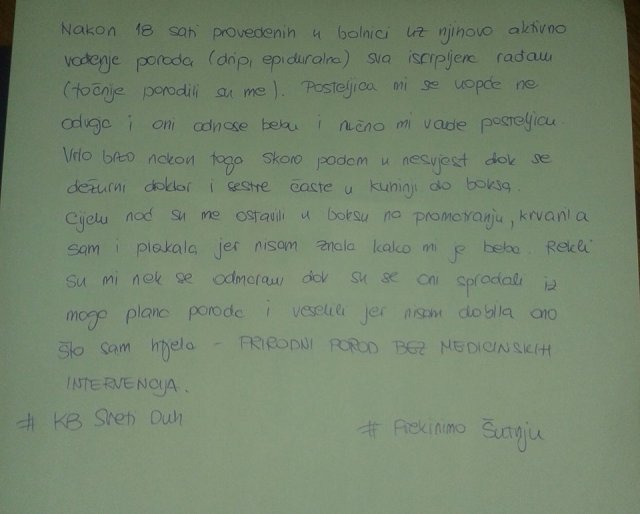 Nakon 18 sati provedenih u bolnici uz njihovo aktivno
vođenje poroda (drip, epiduralna) sva iscrpljena rađam
(točnije porodili su me). Posteljica mi se uopće ne
odvaja i oni odnose bebu i ručno mi vade posteljicu.
Vrlo brzo nakon toga skoro padam u nesvijest dok se
dežurni doktor i sestre časte u kuhinji do boksa.
Cijelu noć su me ostavili u boksu na promatranju, krvarila
sam i plakala jer nisam znala kako mi je beba. Rekli
su mi nek se odmaram dok su se oni sprdali iz
mog plana poroda i veselili jer nisam dobila ono
što sam htjela - PRIRODNI POROD BEZ MEDICINSKIH
INTERVENCIJA.
# KB Sveti Duh
# Prekinimo Šutnju